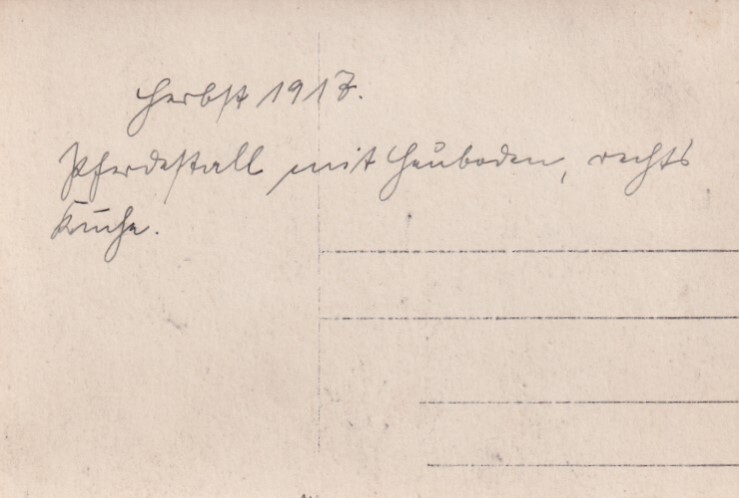 Herbst 1917.
Pferdestall mit Heuboden, rechts
Küche.